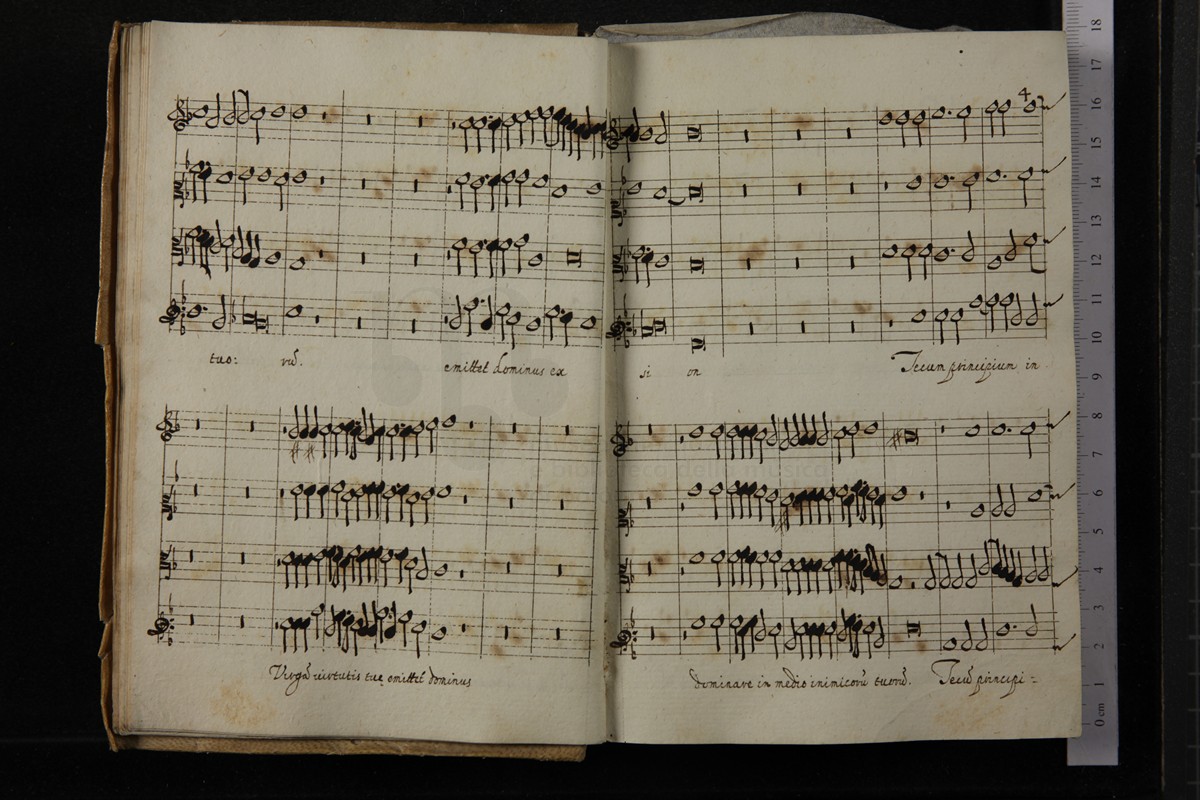 4
tuo: rũ. emittet dominus ex
si on Tecum principium in
Virgã virtutis tuę emittet dominus
dominare in medio inimicorũ tuorũ. Tecũ principi=
e biblioteca della musica
0 cm 1 2 3 4 5 6 7 8 9 10 11 12 13 14 15 16 17 18